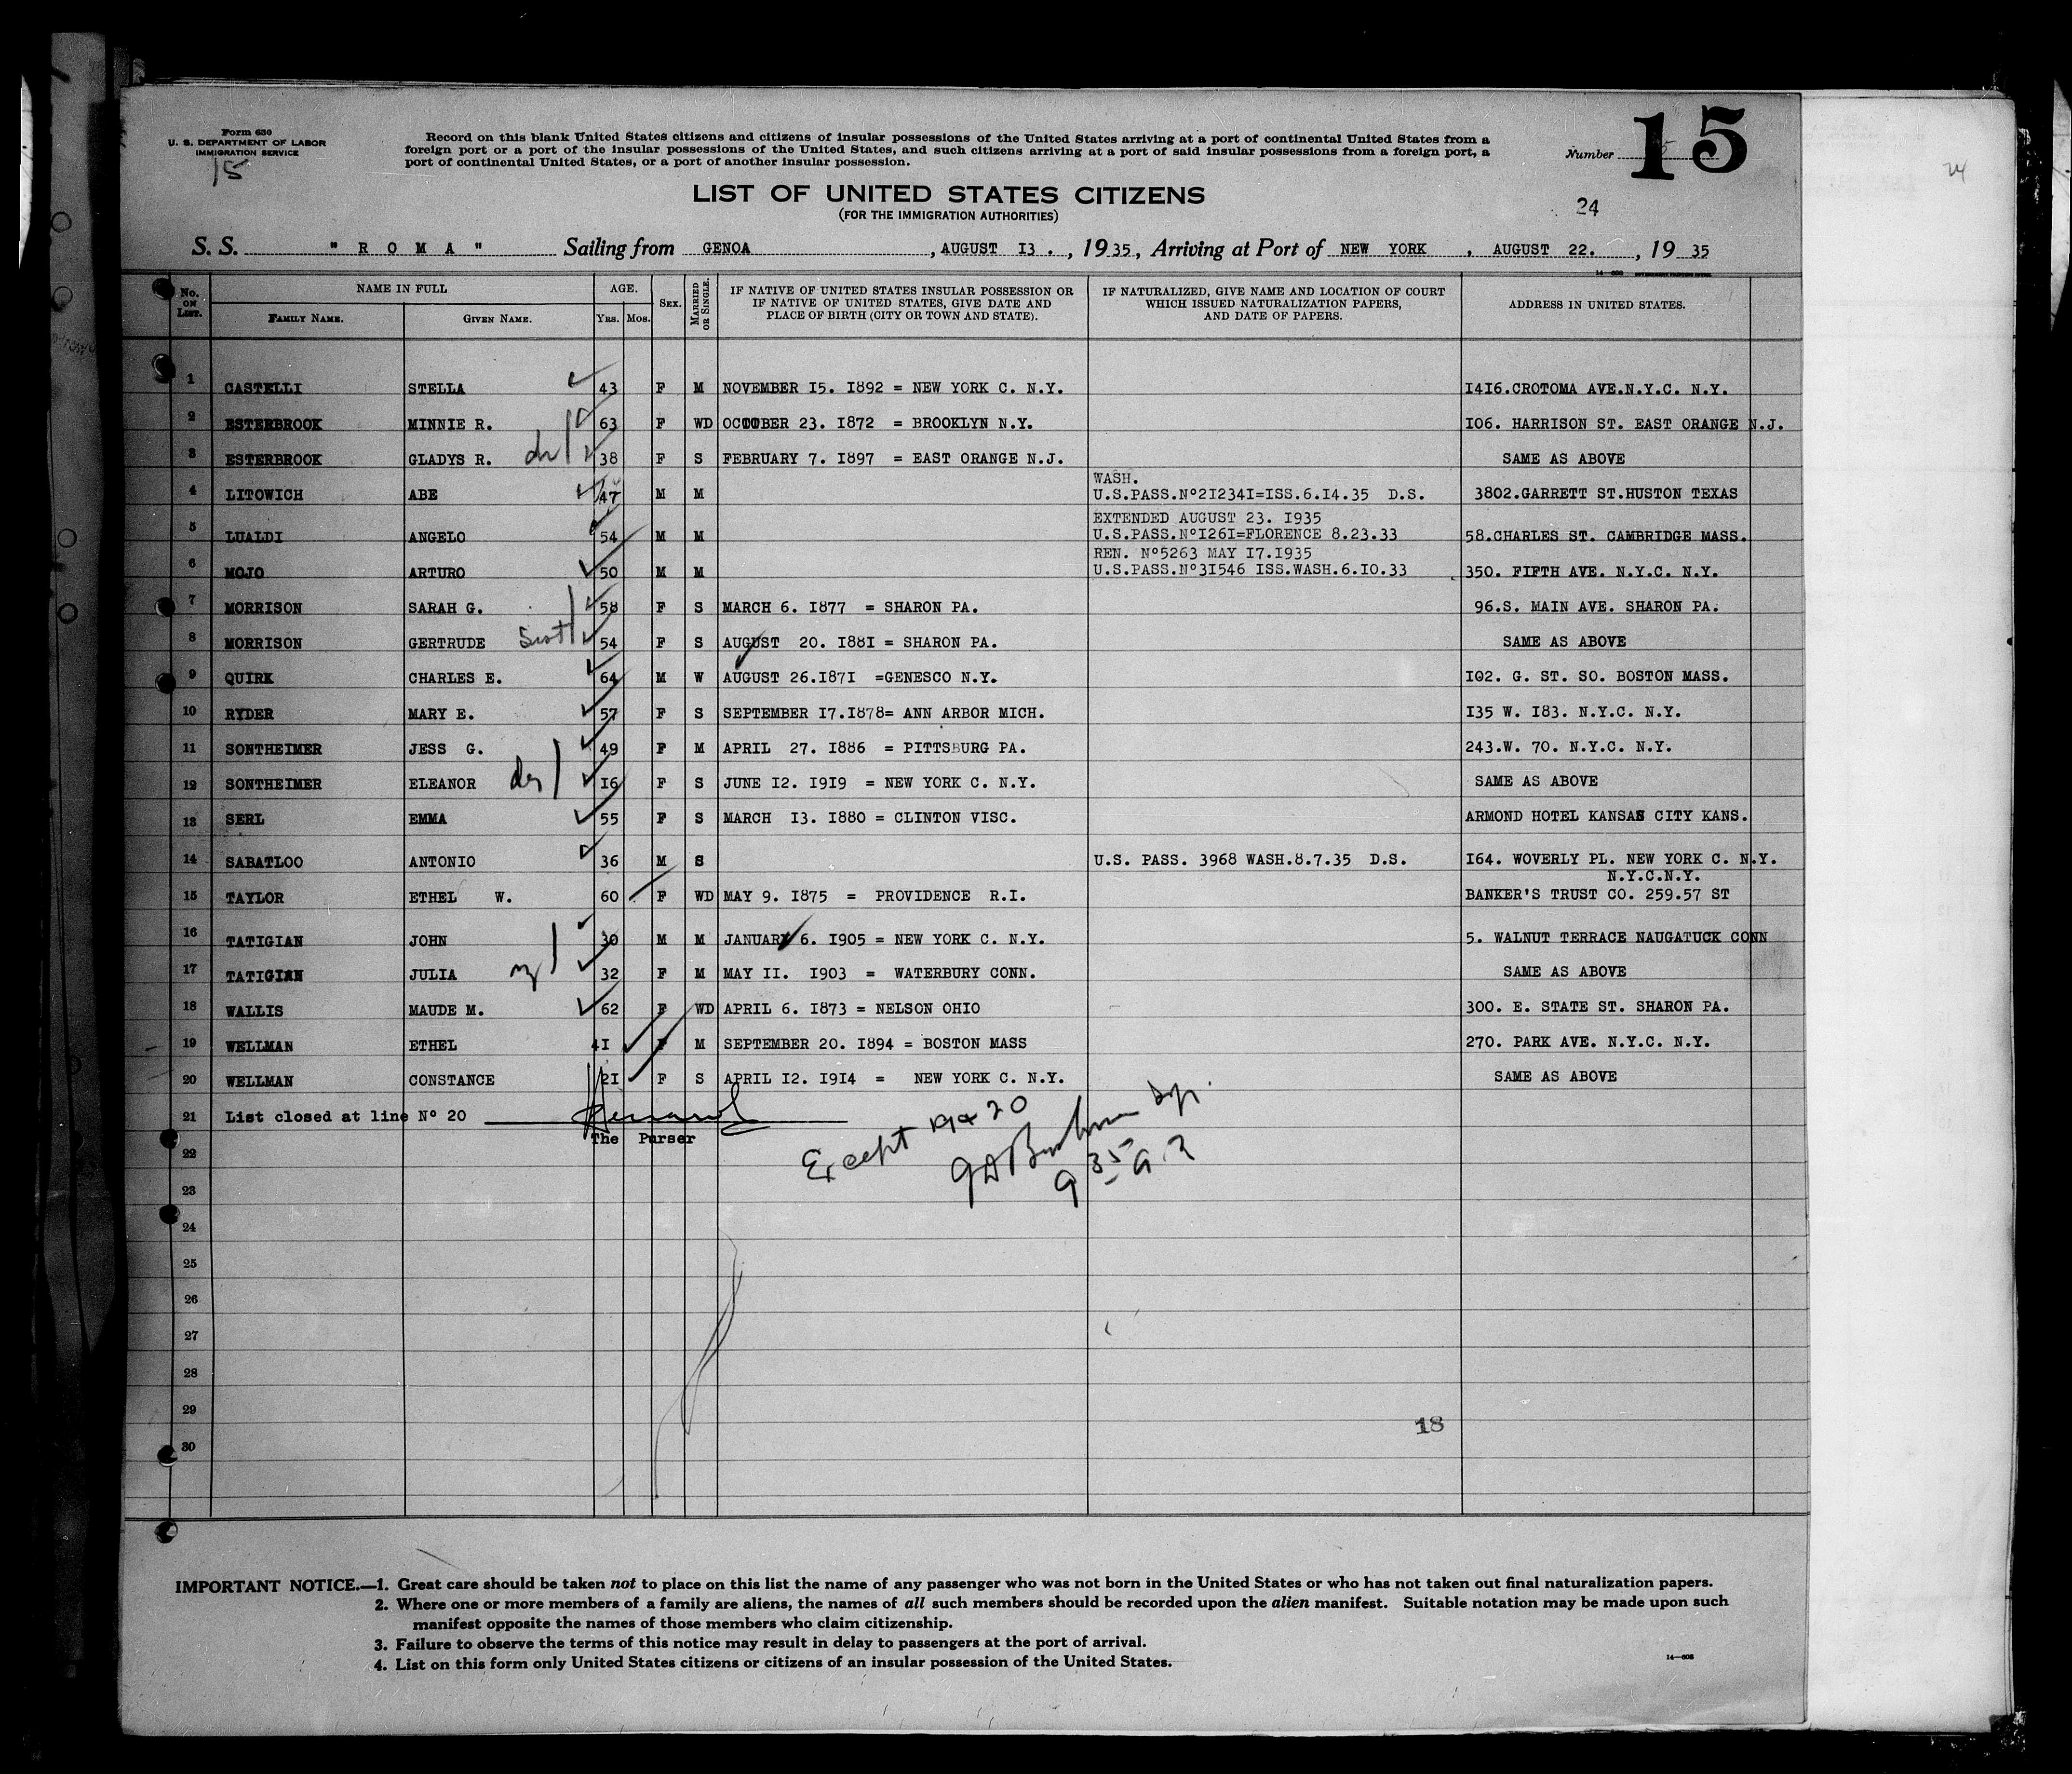 Form 630
U. S. DEPARTMENT OF LABOR
IMMIGRATION SERVICE
15
Record on this blank United States citizens and citizens of insular possessions of the United States arriving at a port of continental United States from a
foreign port or a port of the insular possessions of the United States, and such citizens arriving at a port of said insular possessions from a foreign port, a
port of continental United States, or a port of another insular possession.
Number 15
24
24
LIST OF UNITED STATES CITIZENS
(FOR THE IMMIGRATION AUTHORITIES)
S. S. " R O M A " Sailing from GENOA , AUGUST I3 . , 1935, Arriving at Port of NEW YORK , AUGUST 22. , 19 35
No. ON LIST. NAME IN FULL AGE. SEX. MARRIED OR SINGLE. IF NATIVE OF UNITED STATES INSULAR POSSESSION OR IF NATIVE OF UNITED STATES, GIVE DATE AND PLACE OF BIRTH (CITY OR TOWN AND STATE). IF NATURALIZED, GIVE NAME AND LOCATION OF COURT WHICH ISSUED NATURALIZATION PAPERS, AND DATE OF PAPERS. ADDRESS IN UNITED STATES.
FAMILY NAME. GIVEN NAME. YRS. MOS.
1 CASTELLI STELLA 43 F M NOVEMBER I5. I892 = NEW YORK C. N.Y. I4I6.CROTOMA AVE.N.Y.C. N.Y.
2 ESTERBROOK MINNIE R. 63 F WD OCTOBER 23. I872 = BROOKLYN N.Y. I06. HARRISON ST. EAST ORANGE N.J.
3 ESTERBROOK GLADYS R. 38 F S FEBRUARY 7. I897 = EAST ORANGE N.J. SAME AS ABOVE
WASH.
4 LITOWICH ABE 47 M M U.S.PASS.Nº2I234I=ISS.6.I4.35 D.S. 3802.GARRETT ST.HUSTON TEXAS
EXTENDED AUGUST 23. I935
5 LUALDI ANGELO 54 M M U.S.PASS.NºI26I=FLORENCE 8.23.33 58.CHARLES ST. CAMBRIDGE MASS.
REN. Nº5263 MAY I7.I935
6 MOJO ARTURO 50 M M U.S.PASS.Nº3I546 ISS.WASH.6.IO.33 350. FIFTH AVE. N.Y.C. N.Y.
7 MORRISON SARAH G. 58 F S MARCH 6. I877 = SHARON PA. 96.S. MAIN AVE. SHARON PA.
8 MORRISON GERTRUDE 54 F S AUGUST 20. I88I = SHARON PA. SAME AS ABOVE
9 QUIRK CHARLES E. 64 M W AUGUST 26.I87I =GENESCO N.Y. I02. G. ST. SO. BOSTON MASS.
10 RYDER MARY E. 57 F S SEPTEMBER I7.I878= ANN ARBOR MICH. I35 W. I83. N.Y.C. N.Y.
11 SONTHEIMER JESS G. 49 F M APRIL 27. I886 = PITTSBURG PA. 243.W. 70. N.Y.C. N.Y.
12 SONTHEIMER ELEANOR I6 F S JUNE I2. I9I9 = NEW YORK C. N.Y. SAME AS ABOVE
13 SERL EMMA 55 F S MARCH I3. I880 = CLINTON VISC. ARMOND HOTEL KANSAS CITY KANS.
14 SABATLOO ANTONIO 36 M S U.S. PASS. 3968 WASH.8.7.35 D.S. I64. WOVERLY PL. NEW YORK C. N.Y.
N.Y.C.N.Y.
15 TAYLOR ETHEL W. 60 F WD MAY 9. I875 = PROVIDENCE R.I. BANKER'S TRUST CO. 259.57 ST
16 TATIGIAN JOHN 30 M M JANUARY 6. I905 = NEW YORK C. N.Y. 5. WALNUT TERRACE NAUGATUCK CONN
17 TATIGIAN JULIA 32 F M MAY II. I903 = WATERBURY CONN. SAME AS ABOVE
18 WALLIS MAUDE M. 62 F WD APRIL 6. I873 = NELSON OHIO 300. E. STATE ST. SHARON PA.
19 WELLMAN ETHEL 4I F M SEPTEMBER 20. I894 = BOSTON MASS 270. PARK AVE. N.Y.C. N.Y.
20 WELLMAN CONSTANCE 2I F S APRIL I2. I9I4 = NEW YORK C. N.Y. SAME AS ABOVE
21 List closed at line Nº 20
The Purser
Except 19 & 20
22
23
24
25
26
27
28
29
18
30
IMPORTANT NOTICE.—1. Great care should be taken not to place on this list the name of any passenger who was not born in the United States or who has not taken out final naturalization papers.
2. Where one or more members of a family are aliens, the names of all such members should be recorded upon the alien manifest. Suitable notation may be made upon such
manifest opposite the names of those members who claim citizenship.
3. Failure to observe the terms of this notice may result in delay to passengers at the port of arrival.
4. List on this form only United States citizens or citizens of an insular possession of the United States.